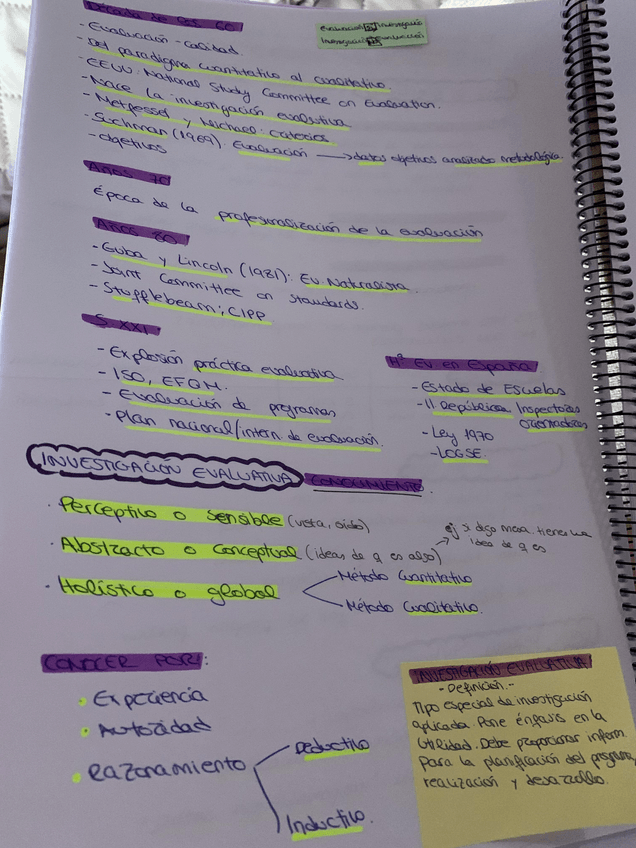 Década de los 60
Evaluación Investigación
Investigación Evaluación
- Evaluación - calidad.
- Del paradigma cuantitativo al cualitativo
- EEUU: National Study Committee on Evaluation.
- Nace la investigación evaluativa
- Metfessel y Michael: criterios
- Suchman (1969): Evaluación → datos objetivos analizados metodológica.
- objetivos
Años 70
Época de la profesionalización de la evaluación
Años 80
- Guba y Lincoln (1981): Ev. Naturalista.
- Joint Committee on Standards.
- Stufflebeam: CIPP
S. XXI
- Explosión práctica evaluativa
- ISO, EFQM.
- Evaluación de programas
- Plan nacional/intern. de evaluación.
Hª Ev en España
- Estado de Escuelas
- II República: Inspectores orientadores
- Ley 1970
- LOGSE.
INVESTIGACIÓN EVALUATIVA CONOCIMIENTO.
· Perceptivo o sensible (vista, oído)
· Abstracto o conceptual (ideas de q es algo) → ej si digo mesa tienes una
idea de q es
· Holístico o global
Método Cuantitativo
Método Cualitativo.
CONOCER POR:
· Experiencia
· Autoridad
· Razonamiento
Deductivo
Inductivo.
INVESTIGACIÓN EVALUATIVA
- Definición.-
Tipo especial de investigación
aplicada. Pone énfasis en la
utilidad. Debe proporcionar inform.
para la planificación del programa,
realización y desarrollo.